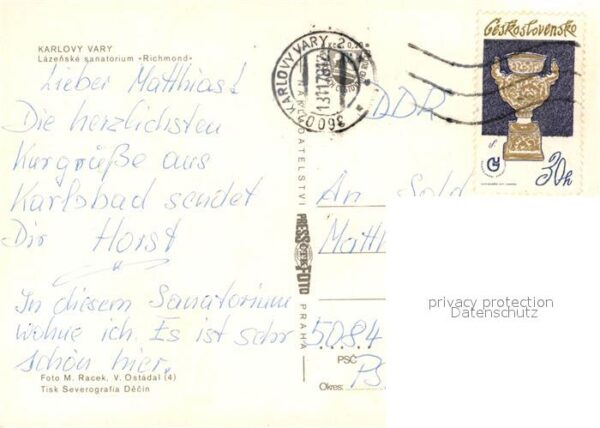 KARLOVY VARY
Lázeňské sanatorium «Richmond»
Lieber Matthias!
Die herzlichsten
Kurgrüße aus
Karlsbad sendet
Dir Horst
In diesem Sanatorium
wohne ich. Es ist sehr
schön hier.
Foto M. Racek, V. Ostádal (4)
Tisk Severografia Děčín
PRESSFOTO
PRAHA
360 02 KARLOVY VARY 2
Československo
30h
DDR
An Sold
Matth
5084
PSČ
Okres:
privacy protection
Datenschutz